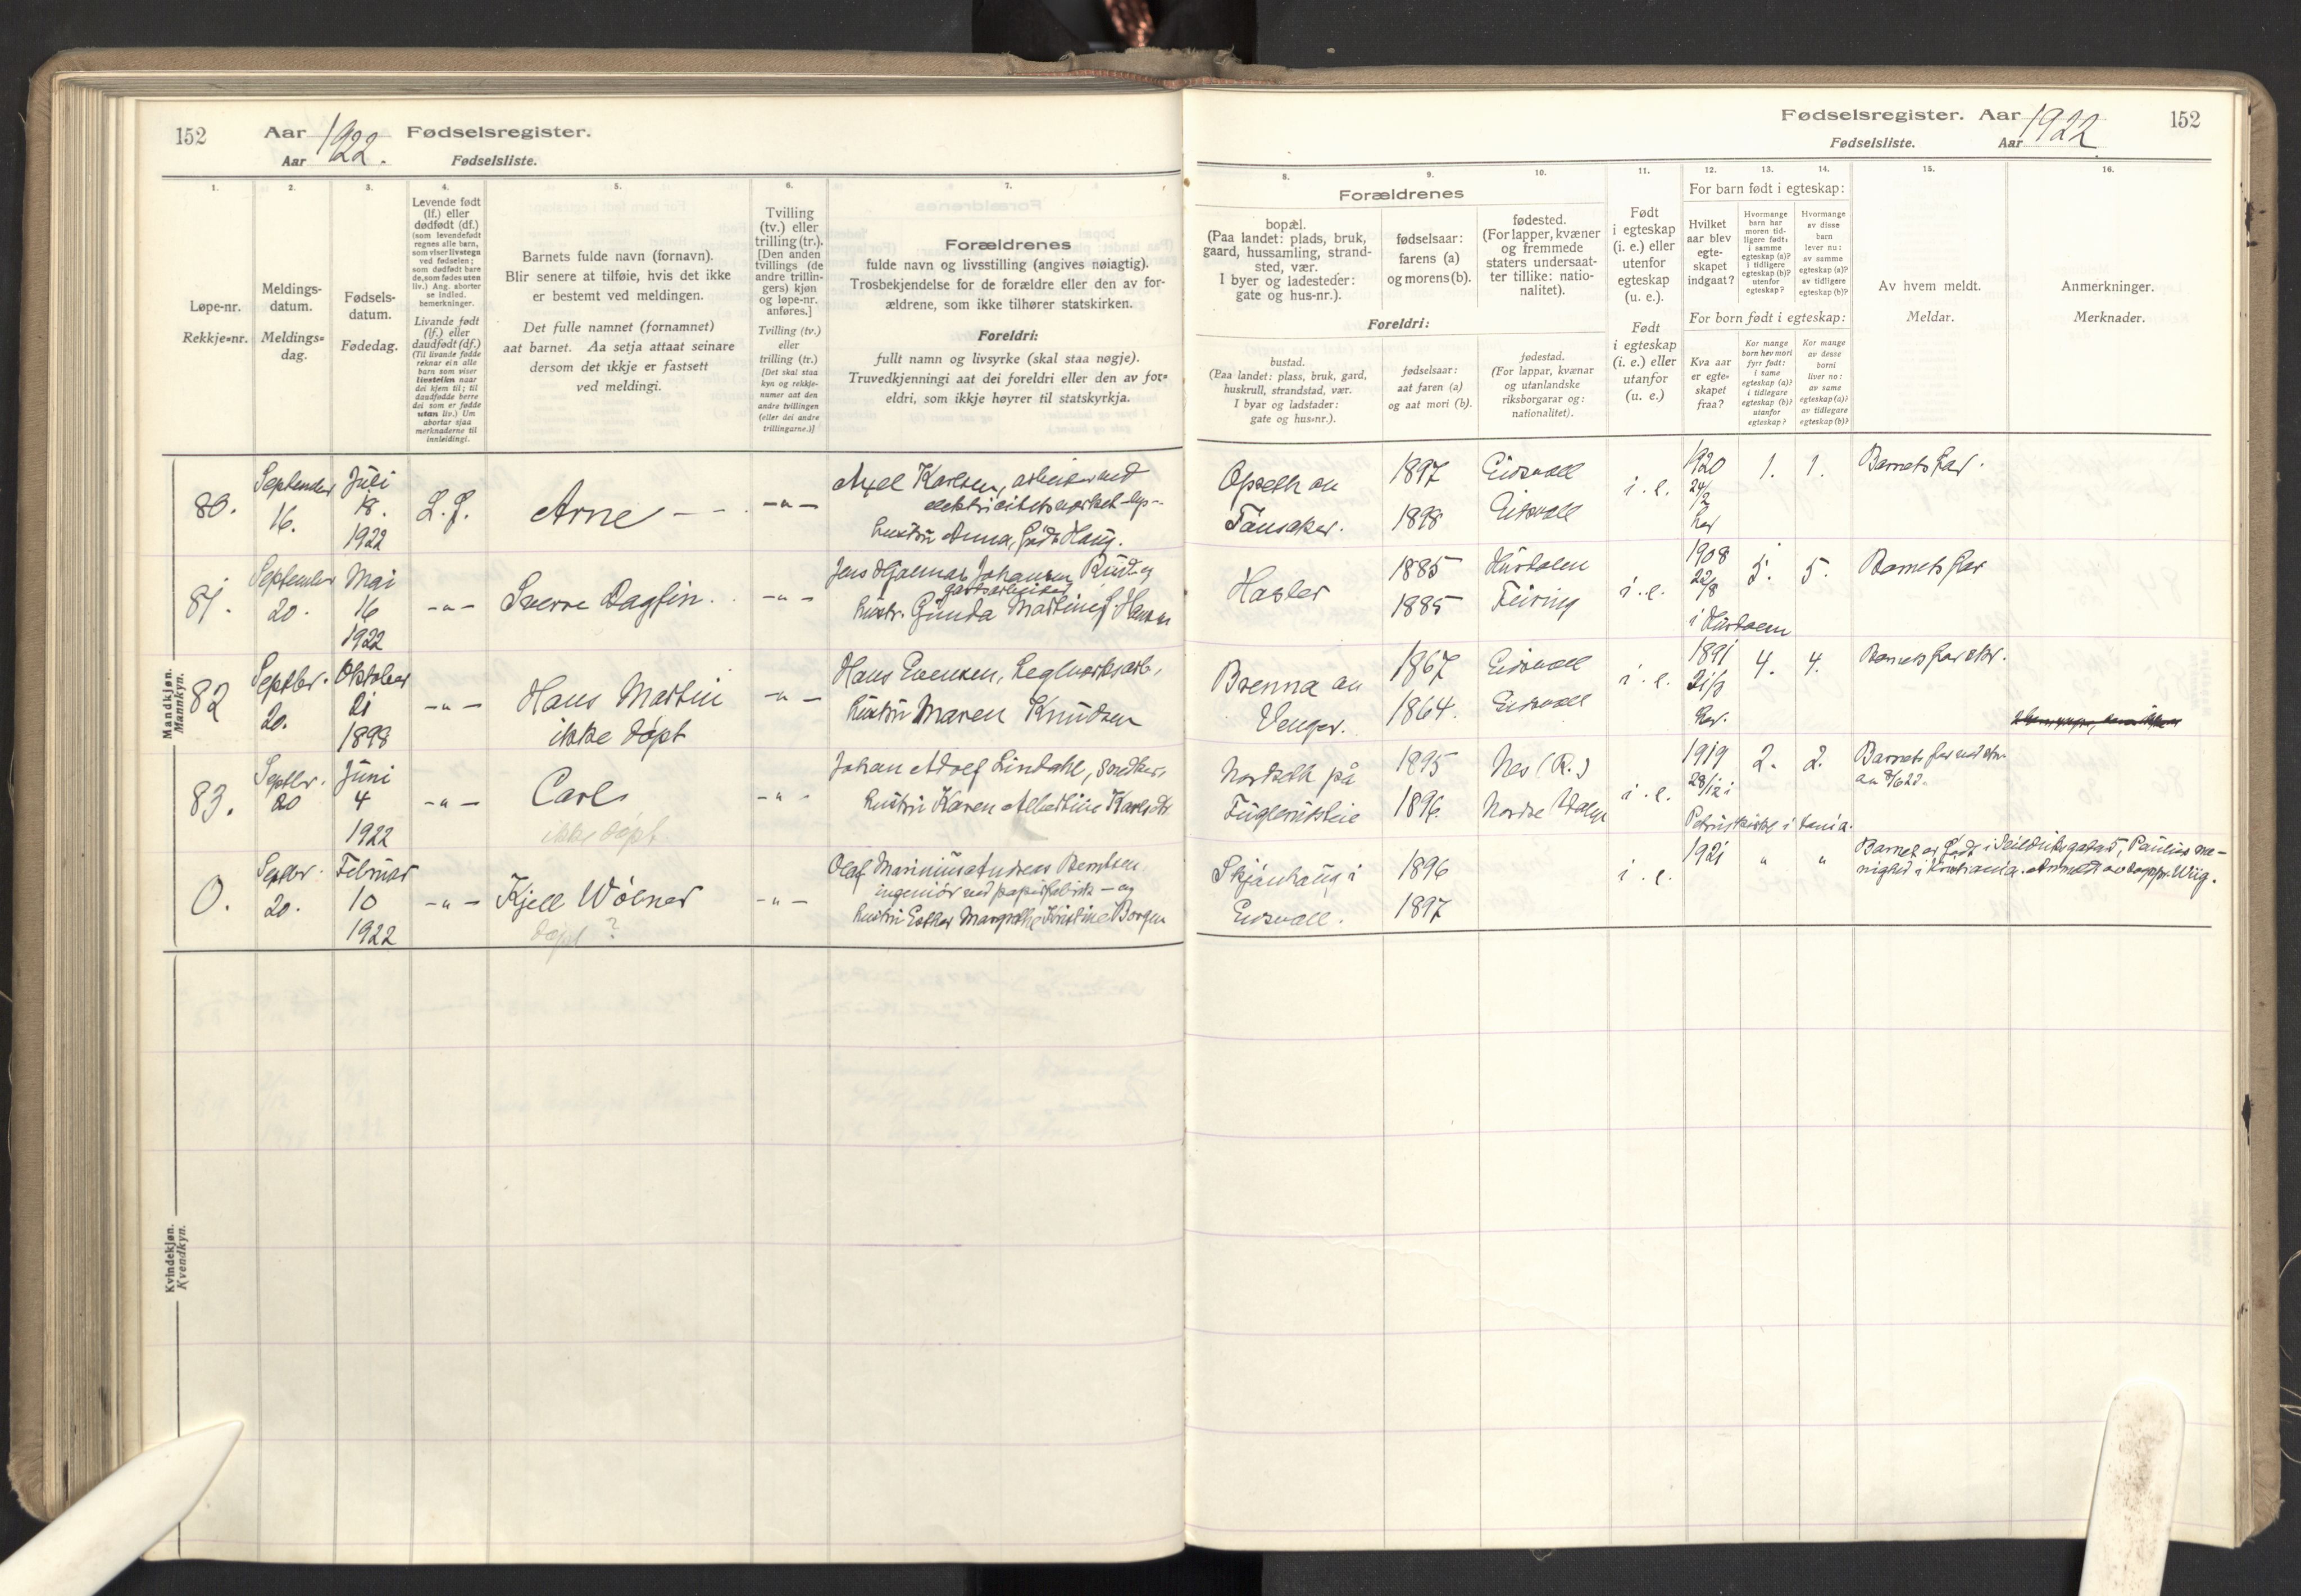 152
Aar 1922 Fødselsregister.
Aar 1922. Fødselsliste.
1.
2.
3.
4.
5.
6.
7.
Løpe-nr.
Rekkje=nr.
Meldings-
datum.
Meldings=
dag.
Fødsels-
datum.
Fødedag.
Levende født
(lf.) eller
dødfødt (df.)
(som levendefødt
regnes alle barn,
som viser livstegn
ved fødselen;
som dødfødt bare
de, som fødes uten
liv.) Ang. aborter
se indled.
bemerkninger.
Livande født
(lf.) eller
daudfødt (df.)
(Til livande fødde
reknar ein alle
barn som viser
livsteikn naar
dei kjem til; til
daudfødde berre
dei som er fødde
utan liv.) Um
abortar sjaa
merknaderne til
innleidingi.
Barnets fulde navn (fornavn).
Blir senere at tilføie, hvis det ikke
er bestemt ved meldingen.
Det fulle namnet (fornamnet)
aat barnet. Aa setja attaat seinare
dersom det ikkje er fastsett
ved meldingi.
Tvilling
(tv.) eller
trilling (tr.).
[Den anden
tvillings (de
andre trillin-
gers) kjøn
og løpe-nr.
anføres.]
Tvilling (tv.)
eller
trilling (tr.)
[Det skal staa
kyn og rekkje-
numer aat den
andre tvillingen
(eller dei andre
trillingarne.)]
Forældrenes
fulde navn og livsstilling (angives nøiagtig).
Trosbekjendelse for de forældre eller den av for-
ældrene, som ikke tilhører statskirken.
Foreldri:
fullt namn og livsyrke (skal staa nøgje).
Truvedkjenningi aat dei foreldri eller den av for=
eldri, som ikkje høyrer til statskyrkja.
Mandkjøn.
Mannkyn.
80.
September
16.
Juli
18.
1922
L. f.
Arne
-"-
Axel Karlsen, arbeider ved
elektricitetsverket
hustru Anna, født Haug.
81.
September
20.
Mai
16
1922
-"-
Sverre Dagfin.
-"-
Jens Hjalmar Johansen Rud og
gardsarbeider
hustr. Gunda Martine f. Hansen
82
Septbr.
20.
Oktober
21
1898
-"-
Hans Martin
ikke døpt
-"-
Hans Evensen, Teglverksarb.,
hustru Maren Knudsen
83.
Septbr.
20
Juni
4
1922
-"-
Carl
ikke døpt
-"-
Johan Adolf Lindahl, snedker,
hustru Karen Albertine Karlsdtr.
0.
Septbr.
20.
Februar
10
1922
-"-
Kjell Wølner
døpt ?
-"-
Olaf Marinius Andreas Berntsen
ingeniør ved papirfabrik - og
hustru Esther Margrethe Kristine Borgen
Kvindekjøn.
Kvendkyn.
Fødselsregister. Aar 1922
152
Fødselsliste. Aar 1922
8.
9.
10.
11.
12.
13.
14.
15.
16.
Forældrenes
bopæl.
(Paa landet: plads, bruk,
gaard, hussamling, strand-
sted, vær.
I byer og ladesteder:
gate og hus-nr.).
fødselsaar:
farens (a)
og morens (b).
fødested.
(For lapper, kvæner
og fremmede
staters undersaat-
ter tillike: natio-
nalitet).
Foreldri:
bustad.
(Paa landet: plass, bruk, gard,
huskrull, strandstad, vær.
I byar og ladstader:
gate og hus=nr.).
fødselsaar:
aat faren (a)
og aat mori (b).
fødestad.
(For lappar, kvænar
og utanlandske
riksborgarar og:
nationalitet).
Født
i egteskap
(i. e.) eller
utenfor
egteskap
(u. e.).
Født
i egteskap
(i. e.) eller
utanfor
(u. e.)
For barn født i egteskap:
Hvilket
aar blev
egte-
skapet
indgaat?
Hvormange
barn har
moren tid-
ligere født:
i samme
egteskap (a)?
i tidligere
egteskap (b)?
utenfor
egteskap?
Hvormange
av disse
barn
lever nu:
av samme
egteskap (a)?
av tidligere
egteskap (b)?
For born født i egteskap:
Kva aar
er egte-
skapet
fraa?
Kor mange
born hev mori
fyrr født:
i same
egteskap (a)?
i tidlegare
egteskap (b)?
utanfor
egteskap?
Kor mange
av desse
borni
liver no:
av same
egteskap (a)?
av tidlegare
egteskap (b)?
Av hvem meldt.
Meldar.
Anmerkninger.
Merknader.
Opseth av
Tønsaker.
1897
1898
Eidsvoll
Eidsvoll
i. e.
1920
24/2
her
1.
1.
Barnets far.
Hasler
1885
1885
Hurdalen
Feiring
i. e.
1908
22/8
i Hurdalen
5.
5.
Barnets far
Brenna av
Venger.
1867
1864.
Eidsvoll
Eidsvoll
i. e.
1891
her.
4.
4.
Barnets far
Fuglerudsteie
1895
1896.
Nes (R.)
i. e.
1919
28/12 i
2.
2.
Barnets far
Skjønhaug i
Eidsvoll.
1896
1897
i. e.
1921
"
"
Barnet er født i Seilduksgaten, Paulus me-
nighet i Kristiania. Anmeldt av